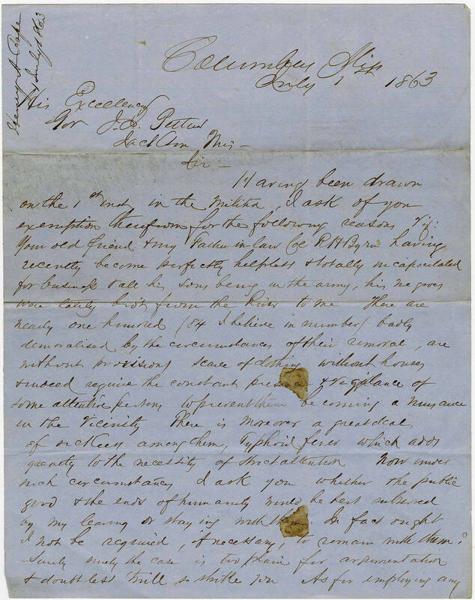 Henry A. Pope
July 1 1863
Columbus Miss
July 1st 1863
His Excellency
Gov J.J. Pettus
Jackson Miss —
Sir —
Having been drawn
on the 1st inst, in the Militia, I ask of you
exemption therefrom for the following reasons Viz:
Your old friend & my Father in law having
recently become perfectly helpless & totally incapacitated
for business & all his sons being in the army, his negroes
were lately from the River to me There are
nearly one hundred (84 I believe in number) badly
demoralised by the circumstances of their removal, are
without provisions, scarce of clothing without houses
& indeed require the constant presence & vigilance of
some attentive persons to prevent them becoming a nuisance
in the Vicinity There is moreover a great deal
of sickness among them, Typhoid fever which adds
greatly to the necessity of strict attention Now under
such circumstances I ask you whether the public
good & the ends of humanity would be best subserved
by my leaving or staying with them In fact ought
I not be required, if necessary, to remain with them?
Surely surely the case is too plain for argumentation
& doubtless will so strike you As for employing any